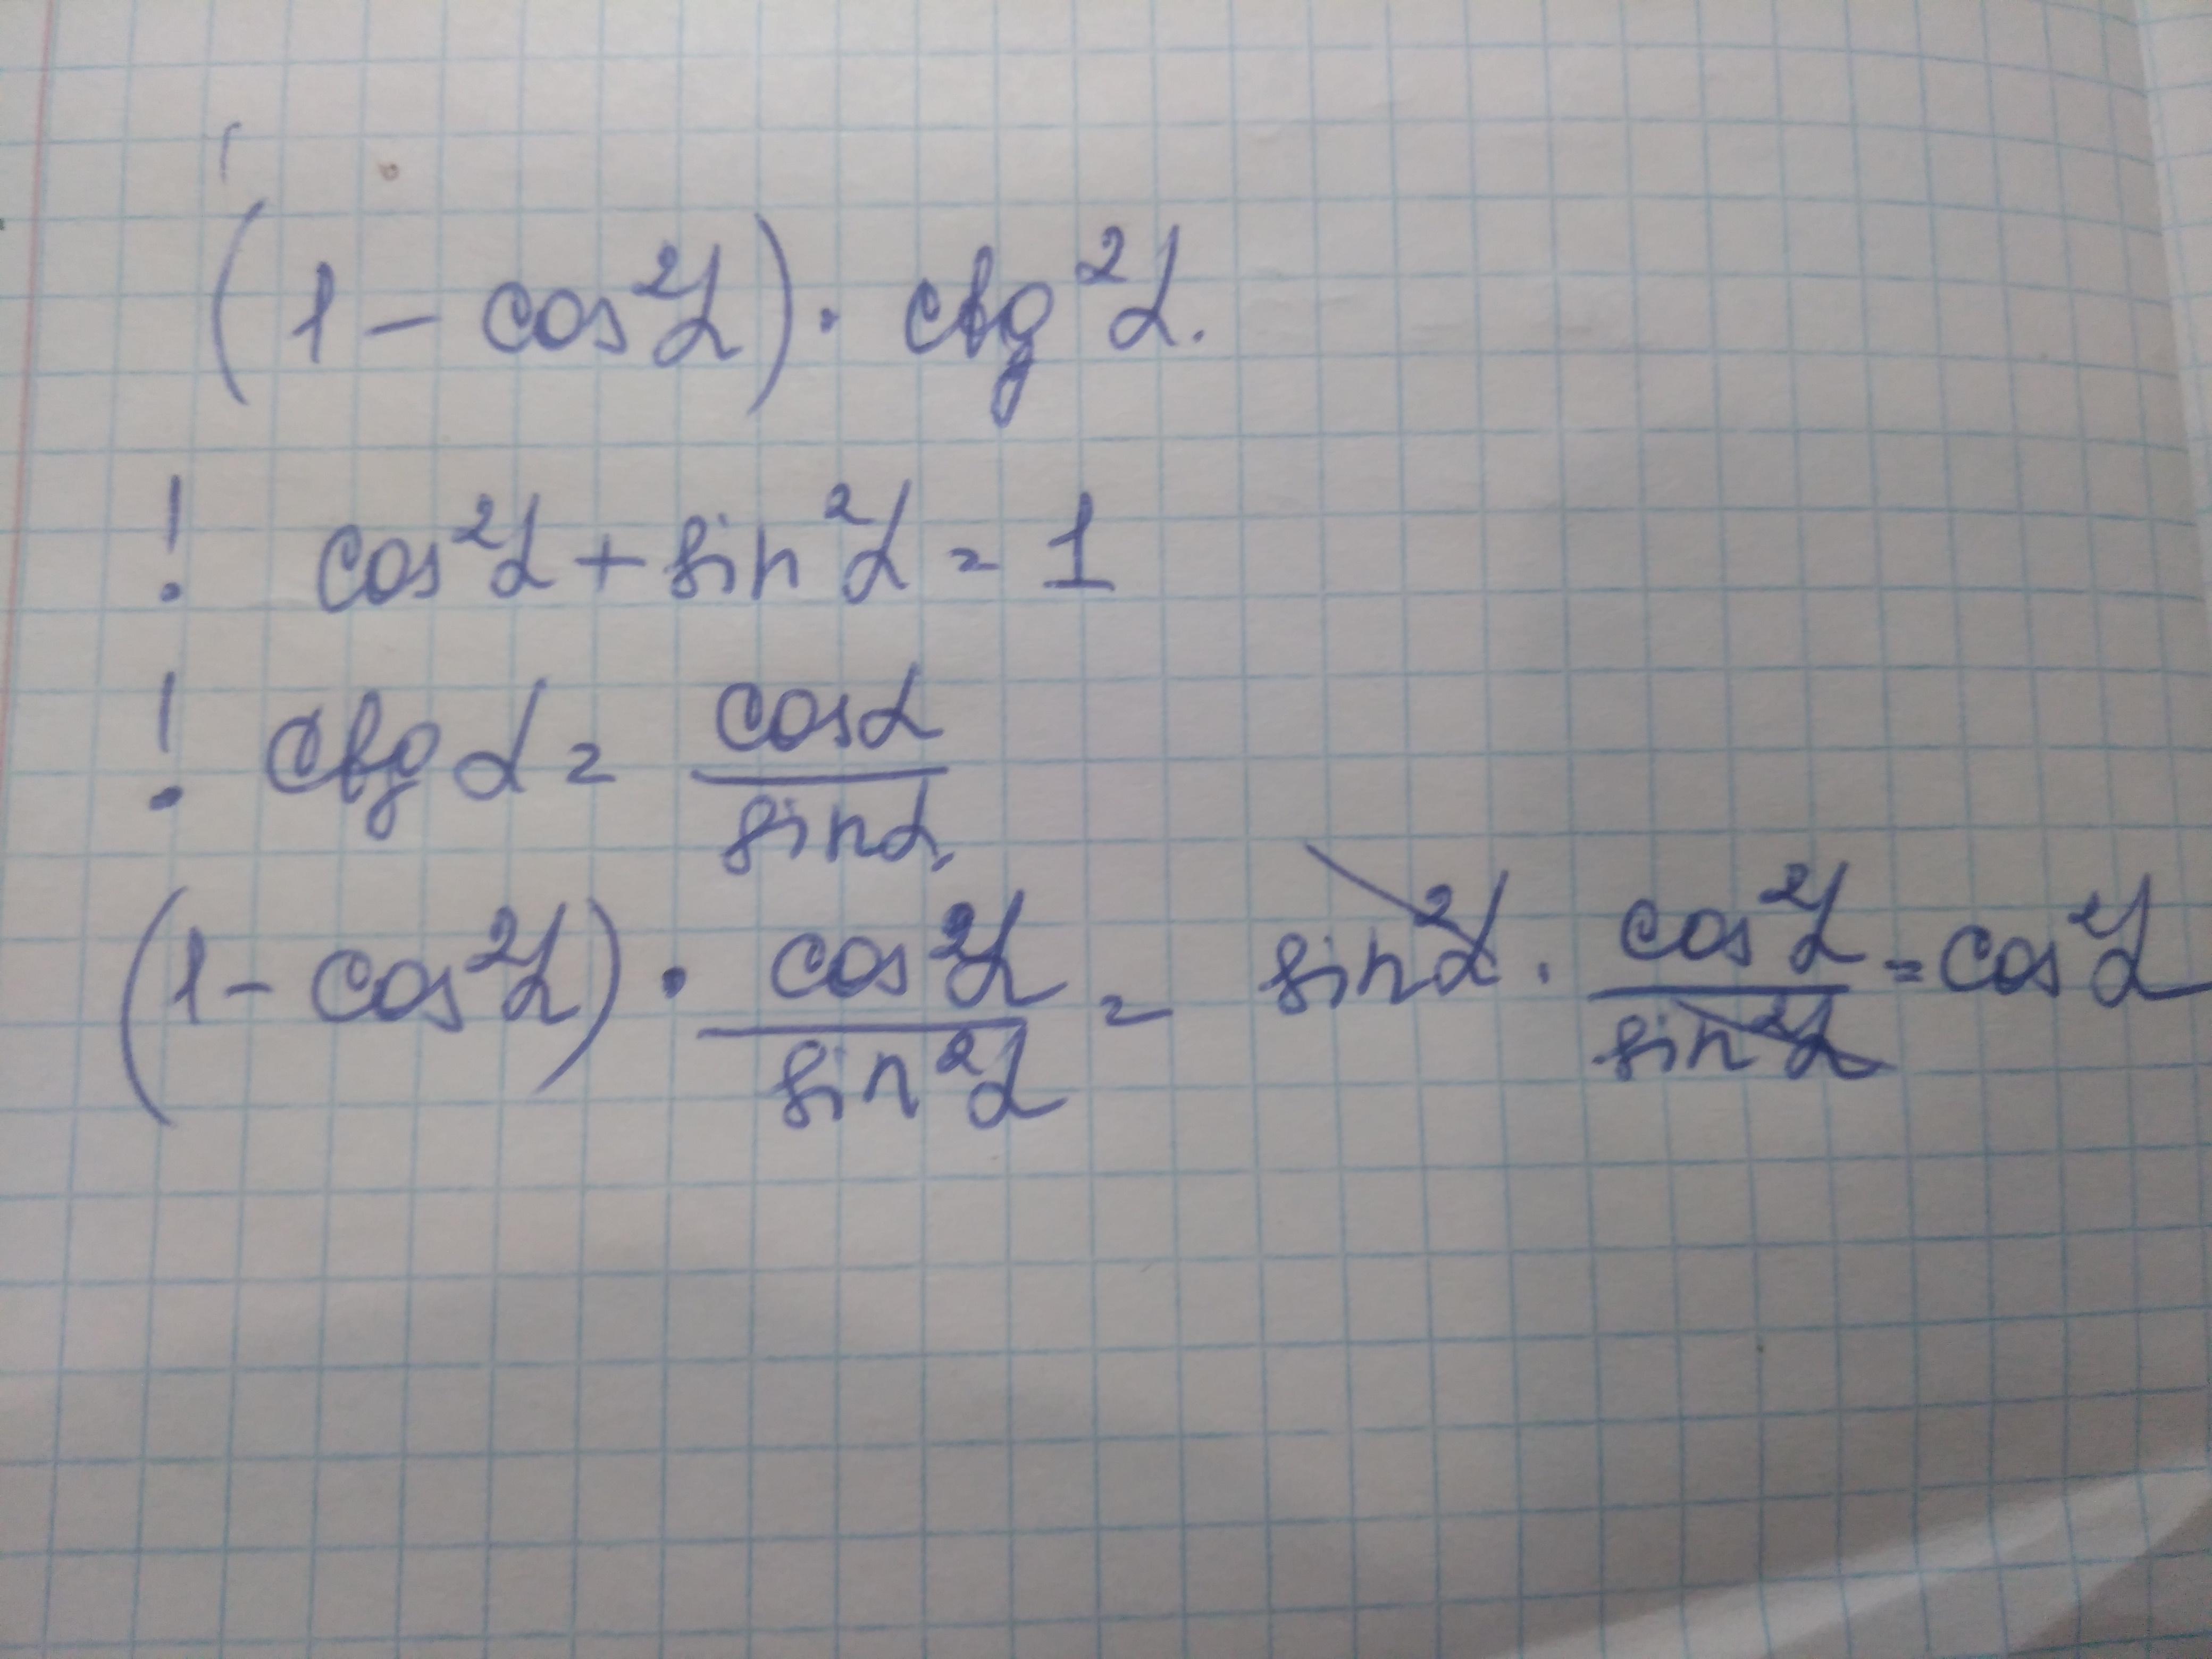 (1 - cos²α) · ctg²α.
! cos²α + sin²α = 1
! ctg α = cosα / sinα.
(1 - cos²α) · cos²α / sin²α = sin²α · cos²α / sin²α = cos²α